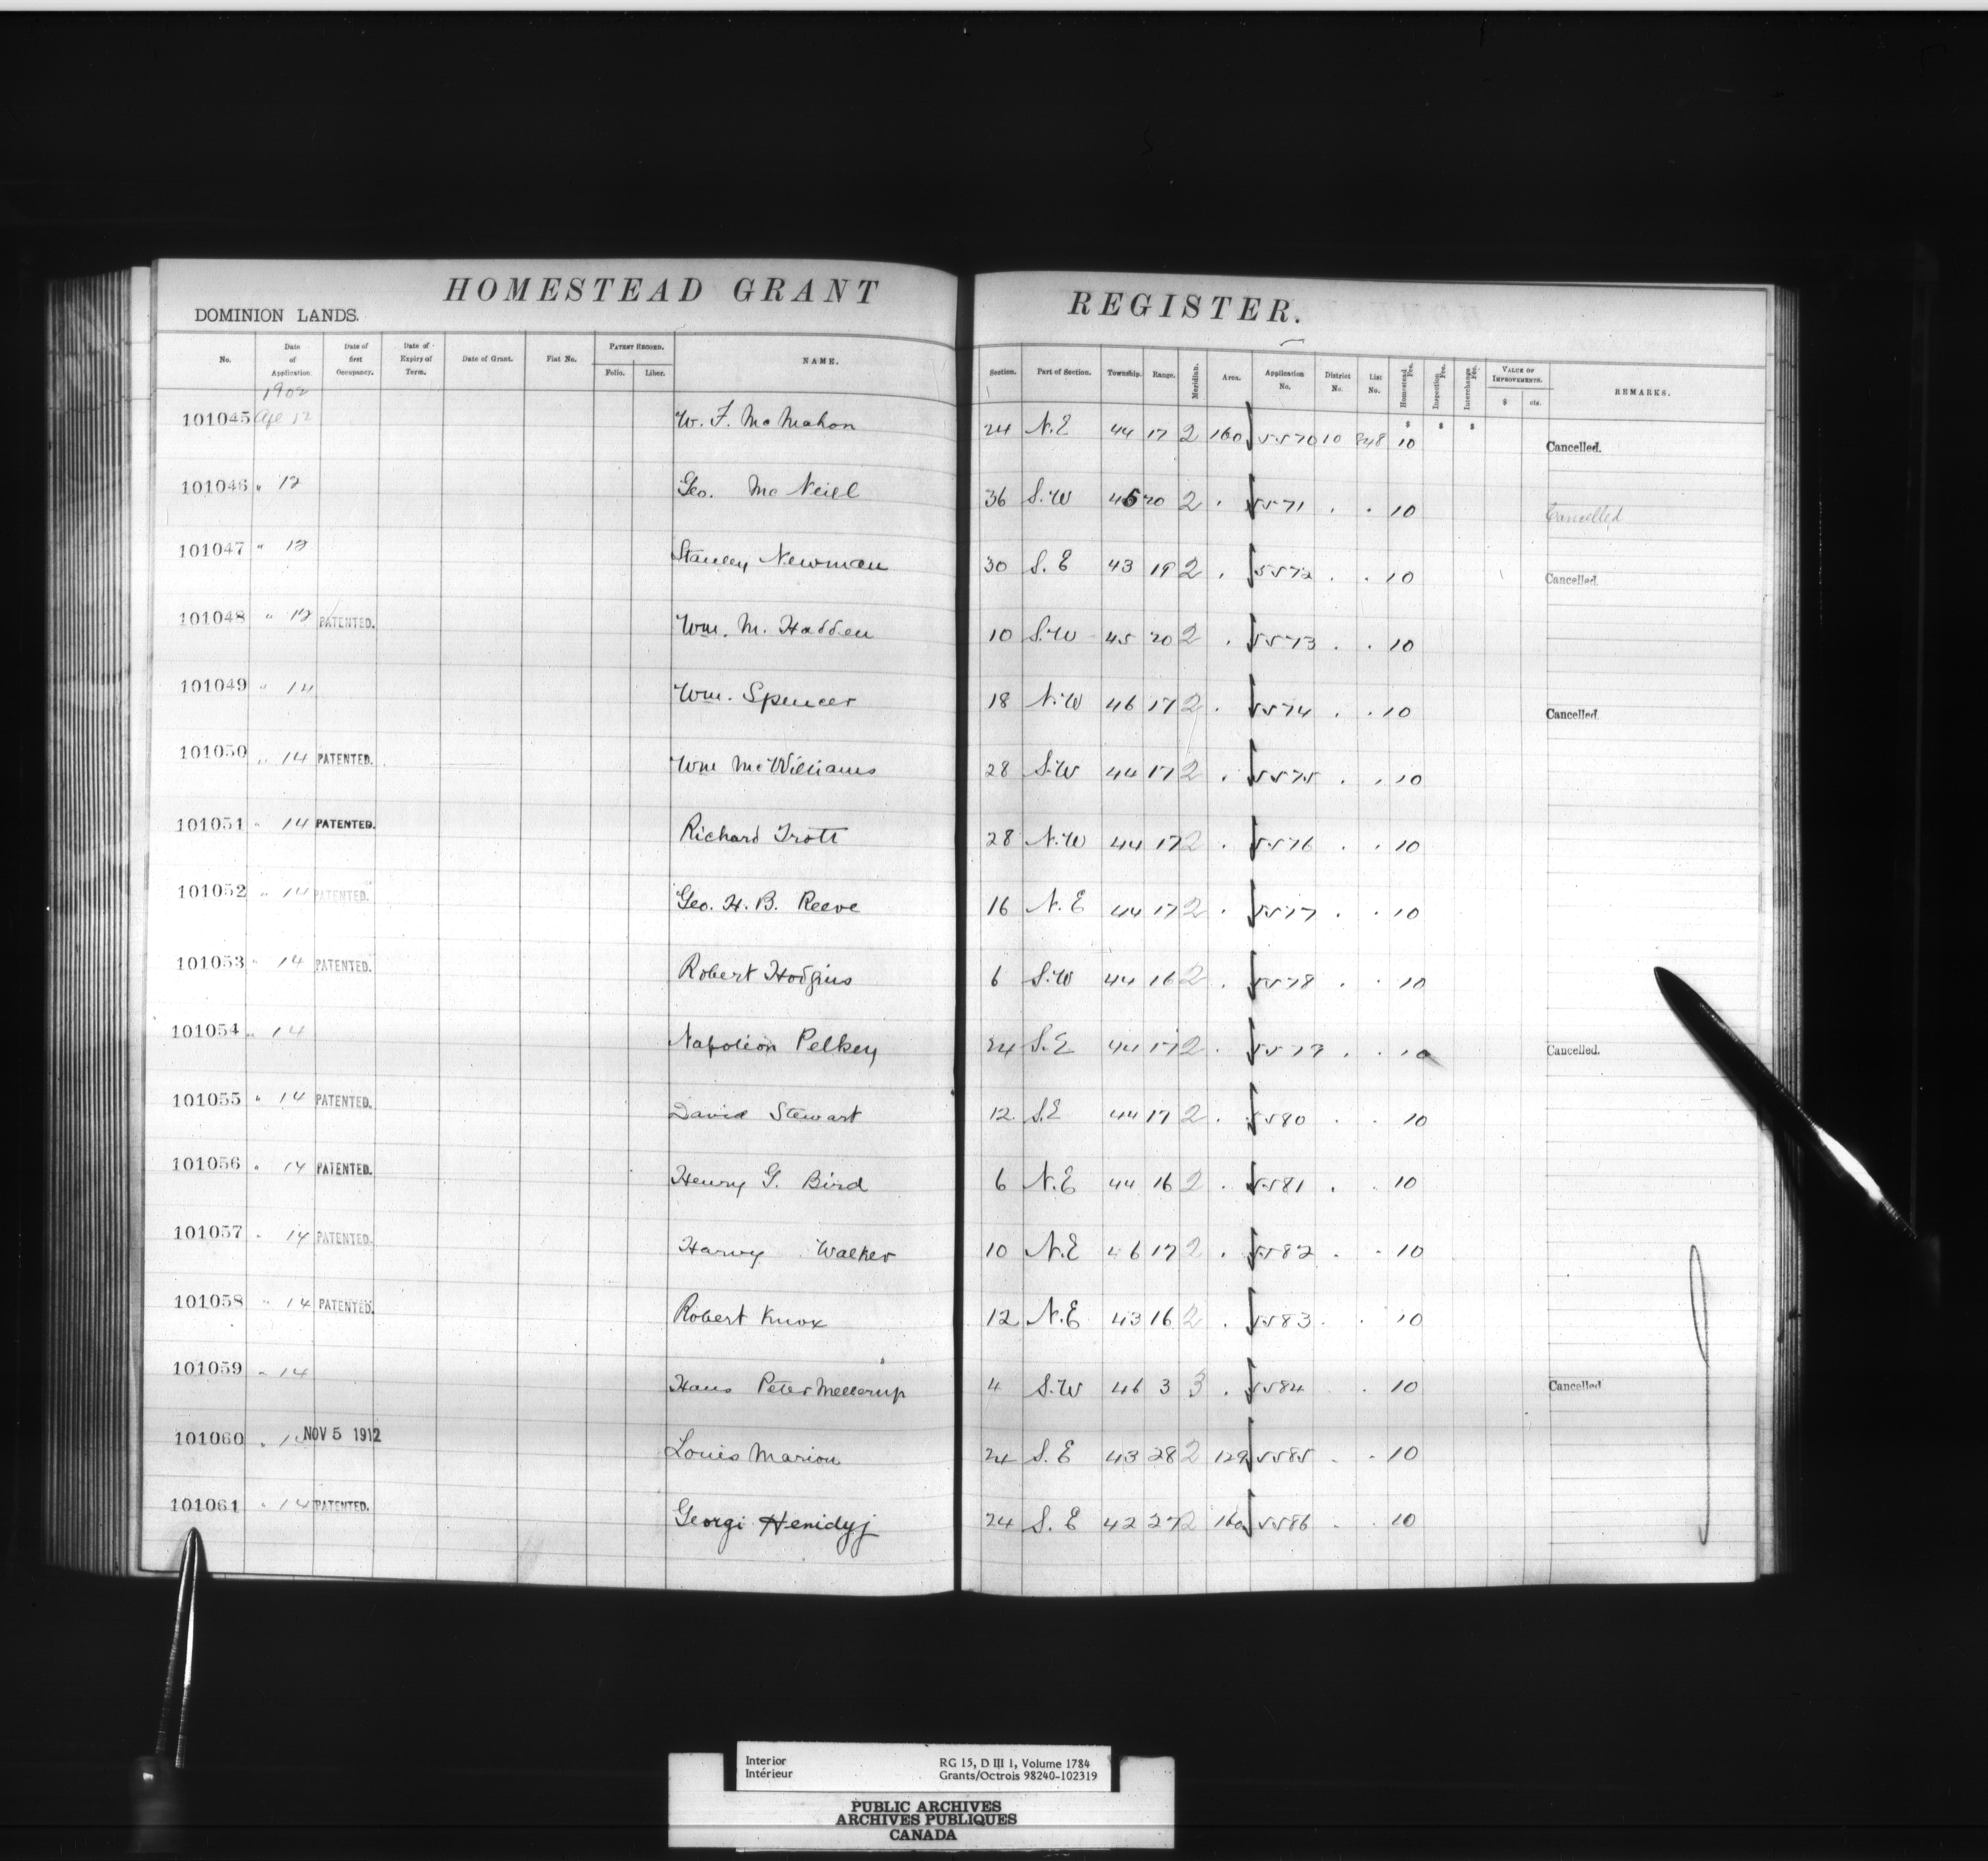 HOMESTEAD GRANT REGISTER.
DOMINION LANDS.
No. Date of Application Date of first Occupancy. Date of Expiry of Term. Date of Grant. Fiat No. PATENT RECORD. Folio. Liber. NAME. Section. Part of Section. Township. Range. Meridian. Area. Application No. District No. List No. Homestead Fee. Inspection Fee. Interchange Fee. VALUE OF IMPROVEMENTS. $ cts. REMARKS.
1902
$ $ $
101045 Apl 12 W. F. McMahon 24 N.E 44 17 2 160 5570 10 848 10 Cancelled.
101046 " 12 Geo. McNeill 36 S.W 45 20 2 . 5571 . . 10 Cancelled
101047 " 12 Stanley Newman 30 S.E 43 19 2 . 5572 . . 10 Cancelled.
101048 " 12 PATENTED. Wm. M. Hadden 10 S.W 45 20 2 . 5573 . . 10
101049 " 14 Wm. Spencer 18 N.W 46 17 2 . 5574 . . 10 Cancelled.
101050 " 14 PATENTED. Wm McWilliams 28 S.W 44 17 2 . 5575 . . 10
101051 " 14 PATENTED. Richard Trott 28 N.W 44 17 2 . 5576 . . 10
101052 " 14 PATENTED. Geo. H. B. Reeve 16 N.E 44 17 2 . 5577 . . 10
101053 " 14 PATENTED. Robert Hodgins 6 S.W 44 16 2 . 5578 . . 10
101054 " 14 Napoleon Pelkey 24 S.E 44 17 2 . 5579 . . 10 Cancelled.
101055 " 14 PATENTED. David Stewart 12 S.E 44 17 2 . 5580 . . 10
101056 " 14 PATENTED. Henry G. Bird 6 N.E 44 16 2 . 5581 . . 10
101057 " 14 PATENTED. Harvy Walker 10 N.E 46 17 2 . 5582 . . 10
101058 " 14 PATENTED. Robert Knox 12 N.E 43 16 2 . 5583 . . 10
101059 " 14 Hans Peter Mellerup 4 S.W 46 3 3 . 5584 . 10 Cancelled
101060 " NOV 5 1912 Louis Marion 24 S.E 43 28 2 129 5585 . . 10
101061 " 14 PATENTED. Georgi Henidyj 24 S.E 42 27 2 160 5586 . . 10
Interior RG 15, D III 1, Volume 1784
Intérieur Grants/Octrois 98240-102319
PUBLIC ARCHIVES
ARCHIVES PUBLIQUES
CANADA